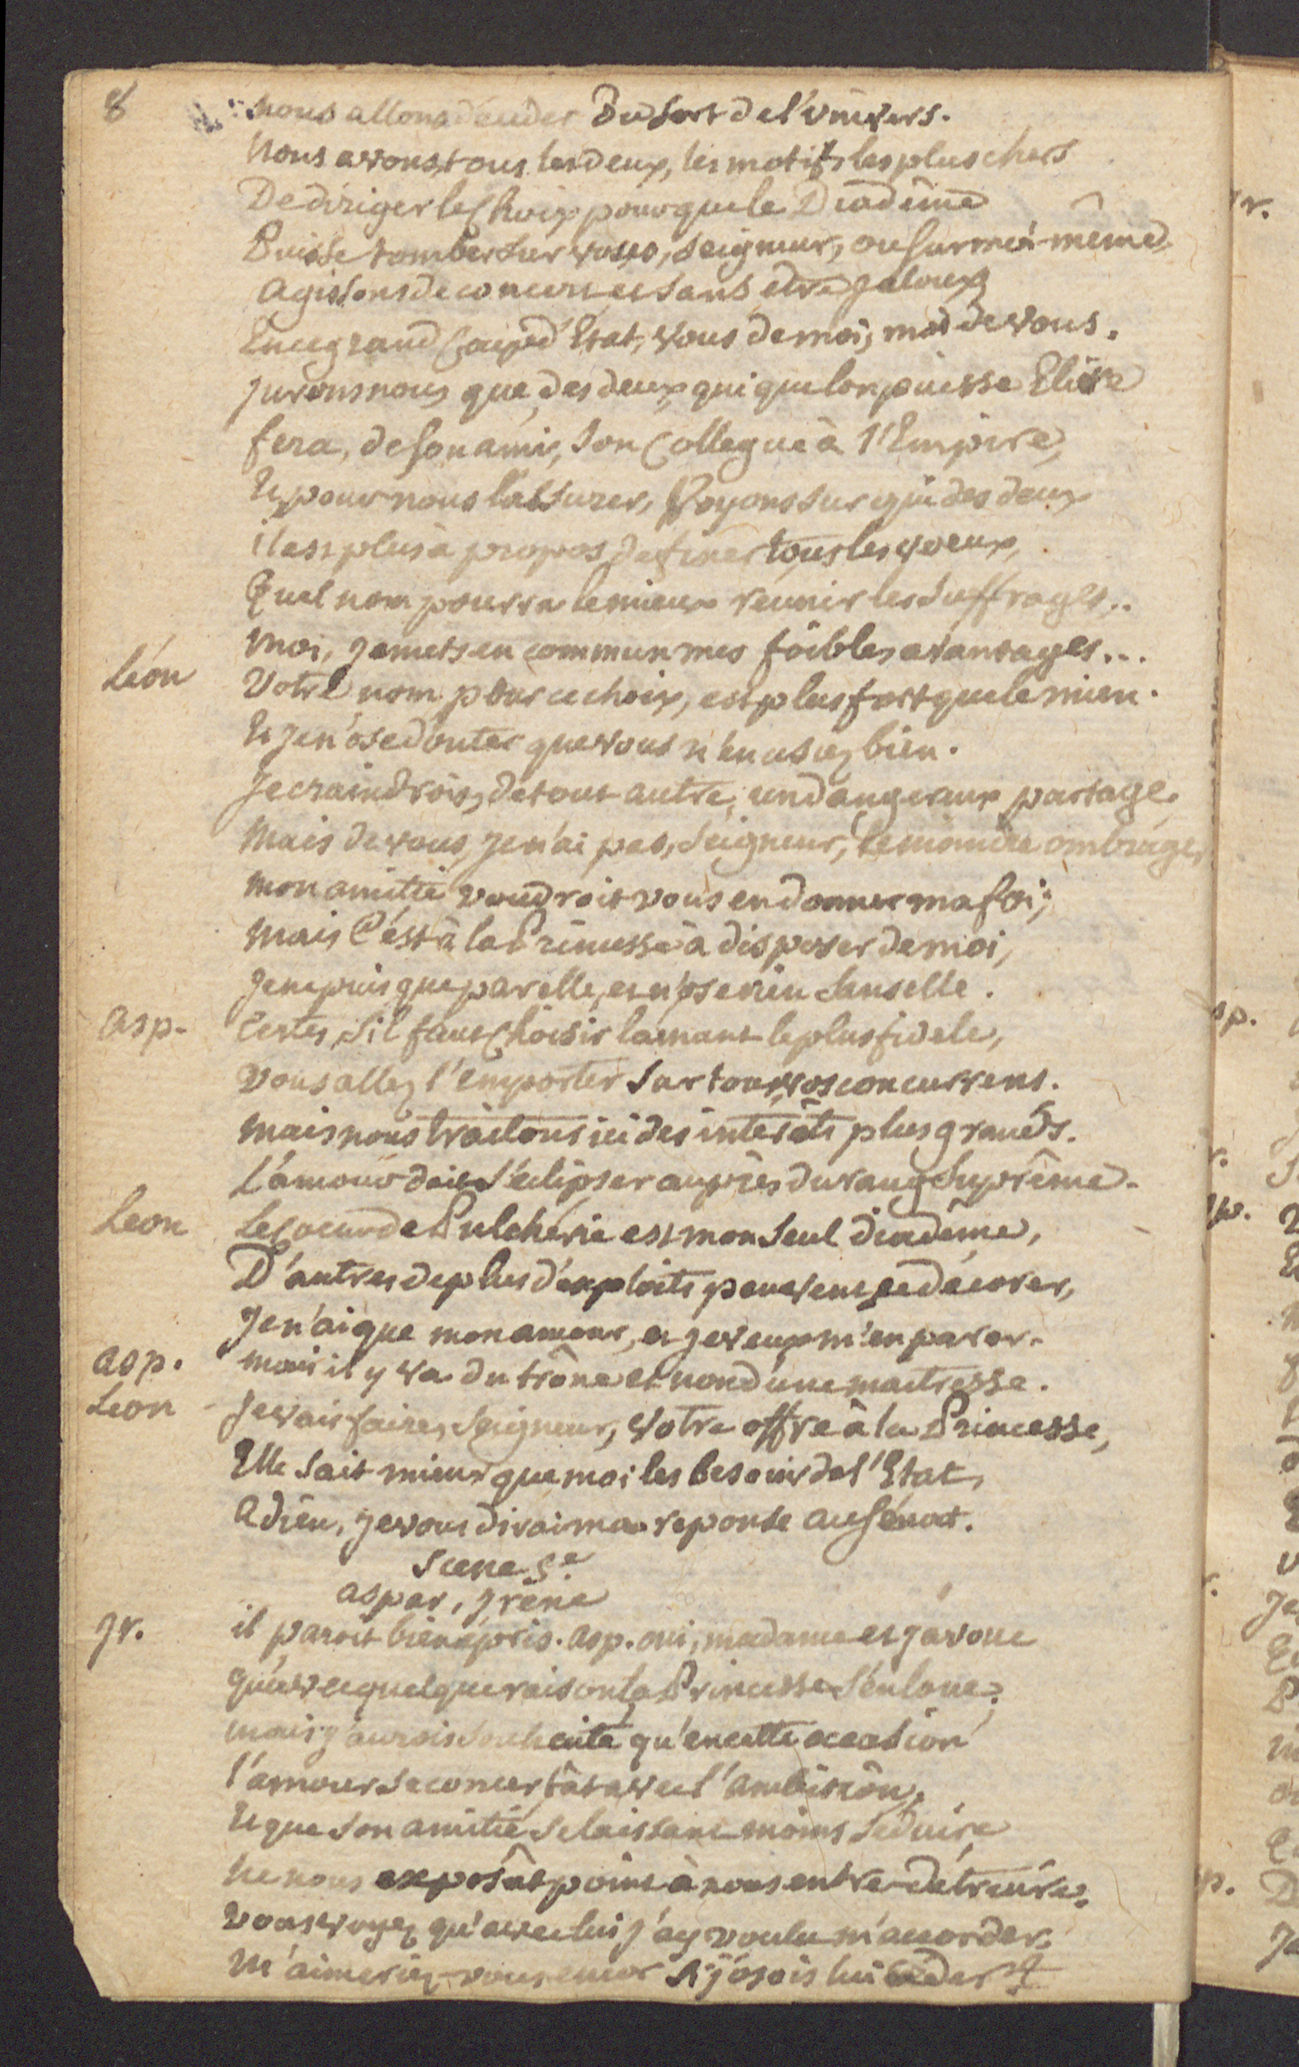 8
nous allons décider Du sort de l'univers.
Nous avons, tous les deux, les motifs les plus chers
De diriger le Choix pour que le Diadême
Puisse tomber sur vous, Seigneur, ou sur moi-même.
agissons de concert et sans être jaloux
En ce grand Coup d'Etat, vous de moi, moi de vous.
jurons nous que, des deux, qui que lon puisse Elire
fera, de son ami, son Collegue à l'Empire,
Et pour nous l'assurer, Voyons sur qui des deux
il est plus à propos de fixer tous les voeux,
Quel nom pourra le mieux reunir les suffrages..
Moi, je mets en commun mes foibles avantages...
Léon Votre nom pour ce choix, est plus fort que le mien.
Et je n'ose douter que vous n'en usiez bien.
Je craindrois, de tout autre, un dangereux partage,
Mais de vous, je n'ai pas, Seigneur, le moindre ombrage,
Mon amitié voudroit vous en donner ma foi;
Mais C'est à la Princesse à disposer de moi,
Je ne puis que par elle, et n'ose rien sans elle.
asp. Certes, S'il faut Choisir lamant le plus fidele,
Vous allez l'emporter sur tous vos concurrens.
Mais nous traitons ici des interêts plus grands.
L'amour doit S'éclipser auprès du rang Suprême.
Leon Le Coeur de Pulcherie est mon seul diadême,
D'autres de plus d'exploits peuvent se décorer,
Je n'ai que mon amour, et je veux m'en parer.
asp. mais il y va du trône et non d'une maitresse.
Leon Je vais faire, Seigneur, Votre offre à la Princesse,
Elle Sait mieux que moi les besoins de l'Etat,
Adieu, je vous dirai ma reponse au Sénat.
Scene 5e
aspar, Jrène
Jr. il paroit bien épris. asp. oui, madame et j'avoue
qu'avec quelque raison la Princesse s'en loue;
mais j'aurois souhaité qu'en cette occasion
l'amour se concertât avec l'ambition,
Et que son amitié se laissant moins séduire
Ne nous exposât point à nous entre-détruire.
Vous voyez qu'avec lui j'ay voulu m'accorder.
M'aimeriez-vous encor si j'osois lui céder?